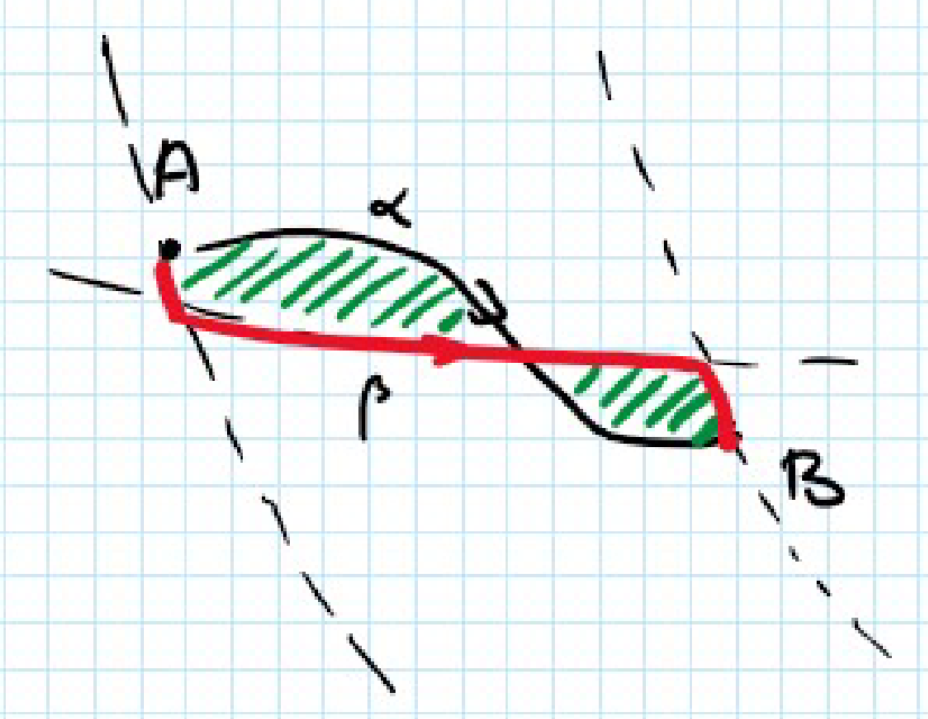 A
α
β
B